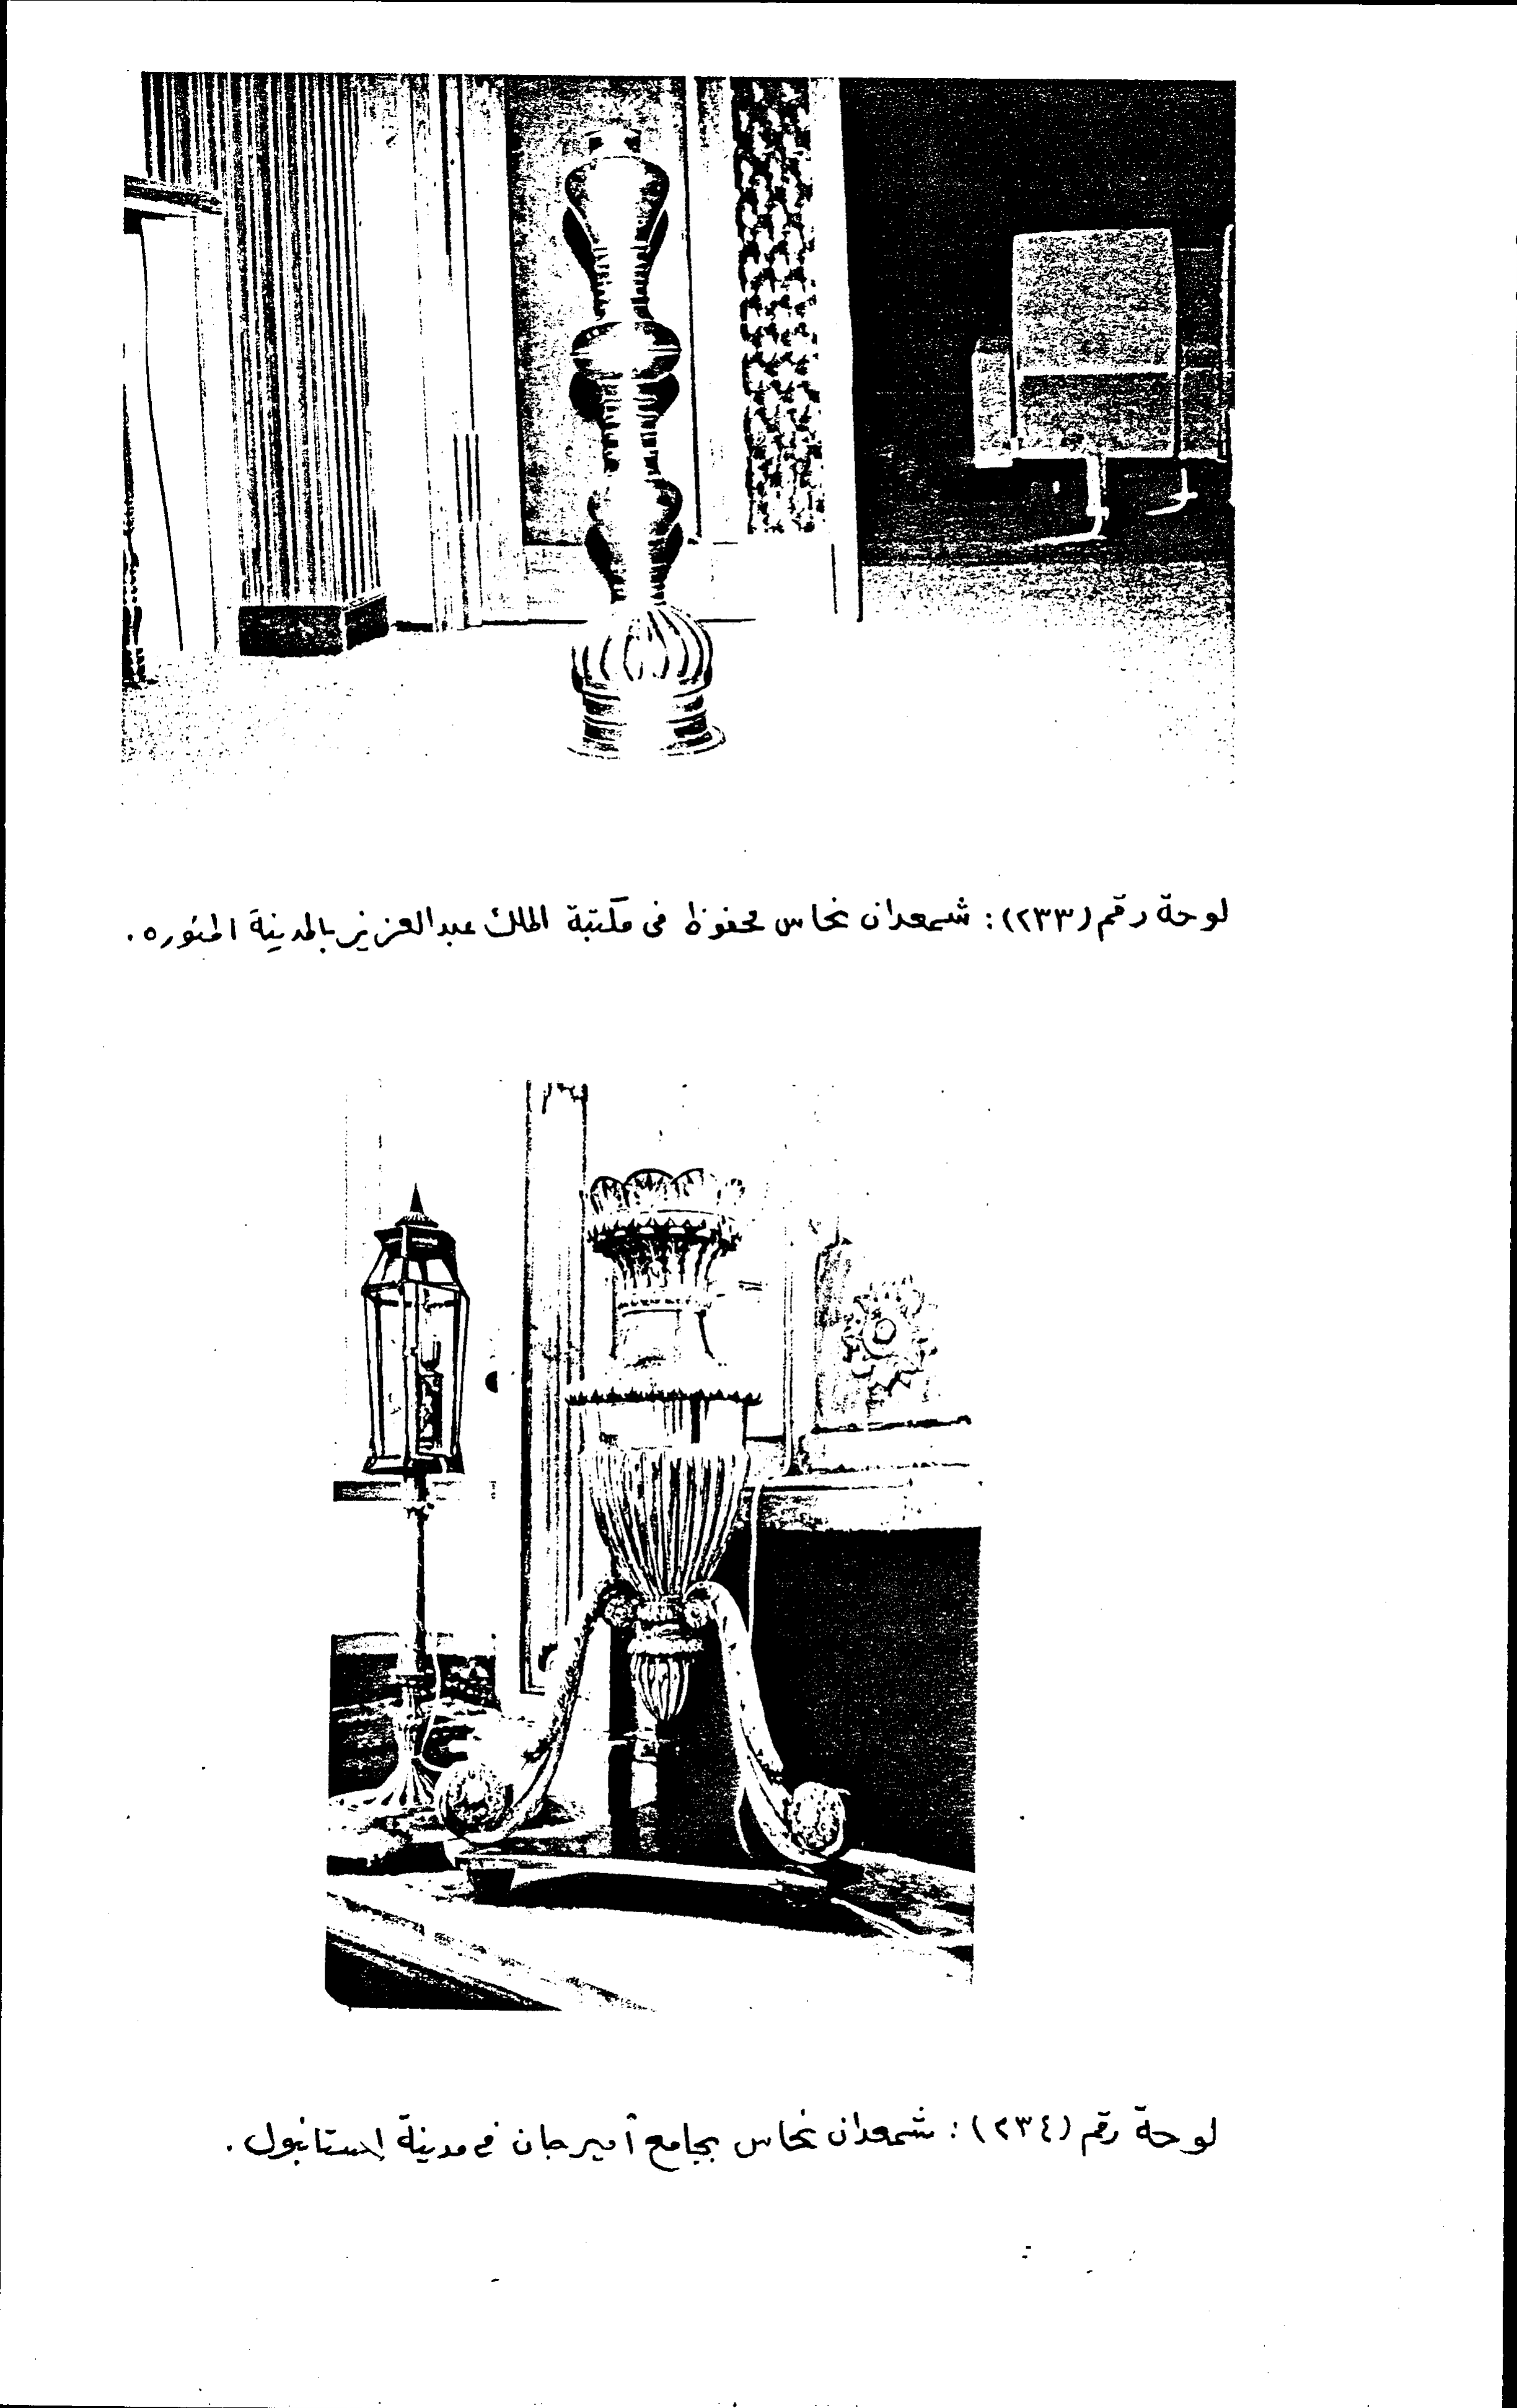 لوحة رقم (٢٣٣) : شمعدان نحاس محفوظ فى مكتبة الملك عبد العزيز بالمدينة المنوره .
لوحة رقم (٢٣٤) : شمعدان نحاس بجامع أميرجان فى مدينة استانبول .